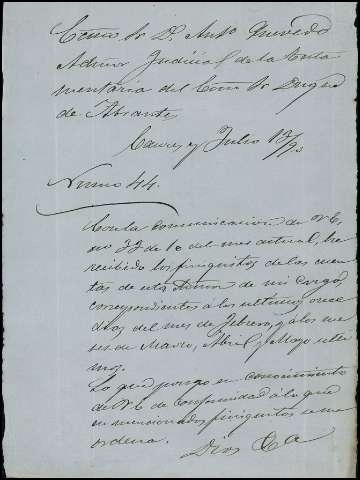 Escmo Sr D. Anto Quevedo
Admor Judicial de la Testa
mentaria del Escmo Sr Duque
de Abrante
Julio 13/
Numo 44.
Con la comunicacion de V E
no 33 de 6 del mes actual, he
recibido los finiquitos de las cuen
tas de esta Admon de mi cargo,
correspondientes á los ultimos
dias del mes de Febrero, y á los me
ses de Marzo, Abril, y Mayo ulti
mos.
Lo que pongo en conocimiento
de V E de conformidad á lo que
en mencionados finiquitos se me
ordena.
Dios &a